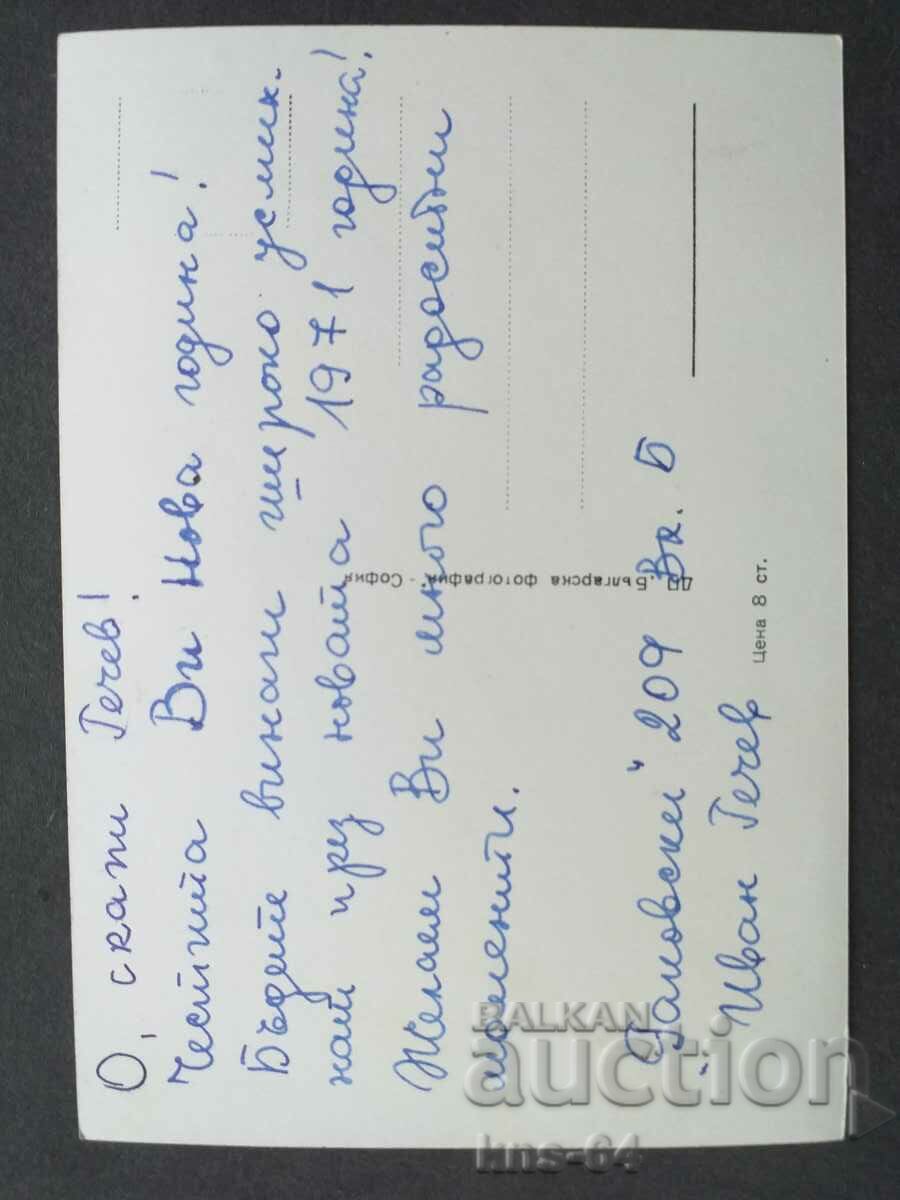 О, скъпи Гечев!
Честита Ви Нова година!
Бъдете винаги широко усмих.
нат през новата 1971 година!
Желаем Ви много радостни
моменти.
"Раковски" 209 Вх. Б
Иван Гечев
ДП „Българска фотография" - София
Цена 8 ст.
BALKAN
auction
kns-64